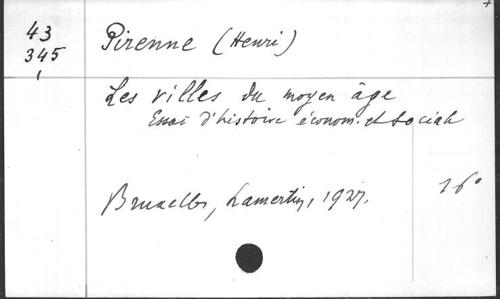 43
345
Pirenne (Henri)
Les villes du moyen âge
Essai d'histoire économ. et sociale
Bruxelles, Lamertin, 1927.
16°